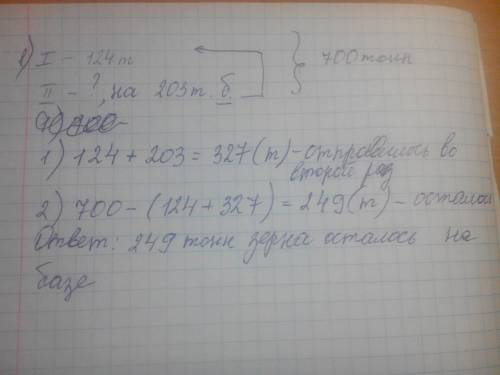 1) I - 124 т } 700 тонн
II - ?, на 203 т. б.
1) 124 + 203 = 327 (т) - отправилось во
второй раз
2) 700 - (124 + 327) = 249 (т) - осталось
Ответ: 249 тонн зерна осталось на
базе